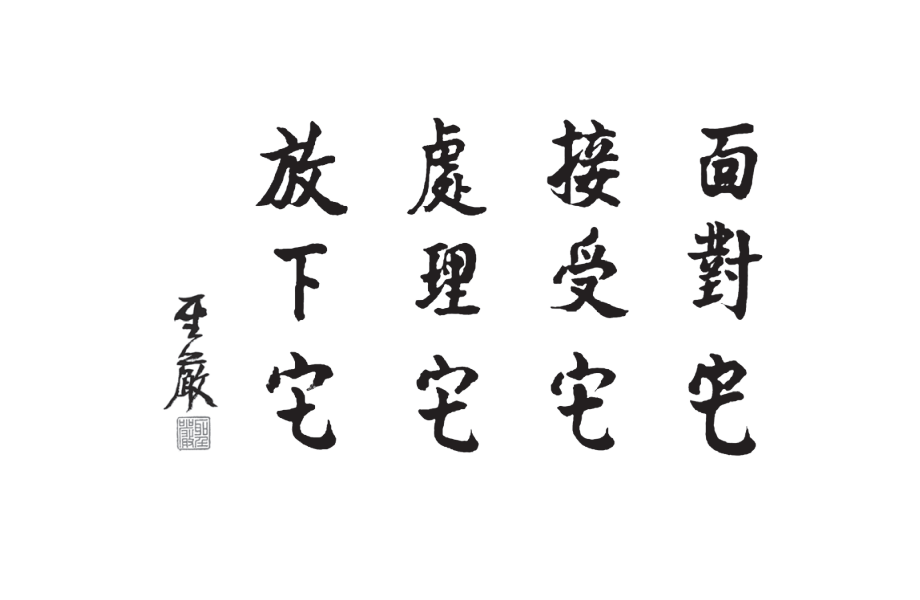 面對它
接受它
處理它
放下它
聖嚴
聖嚴